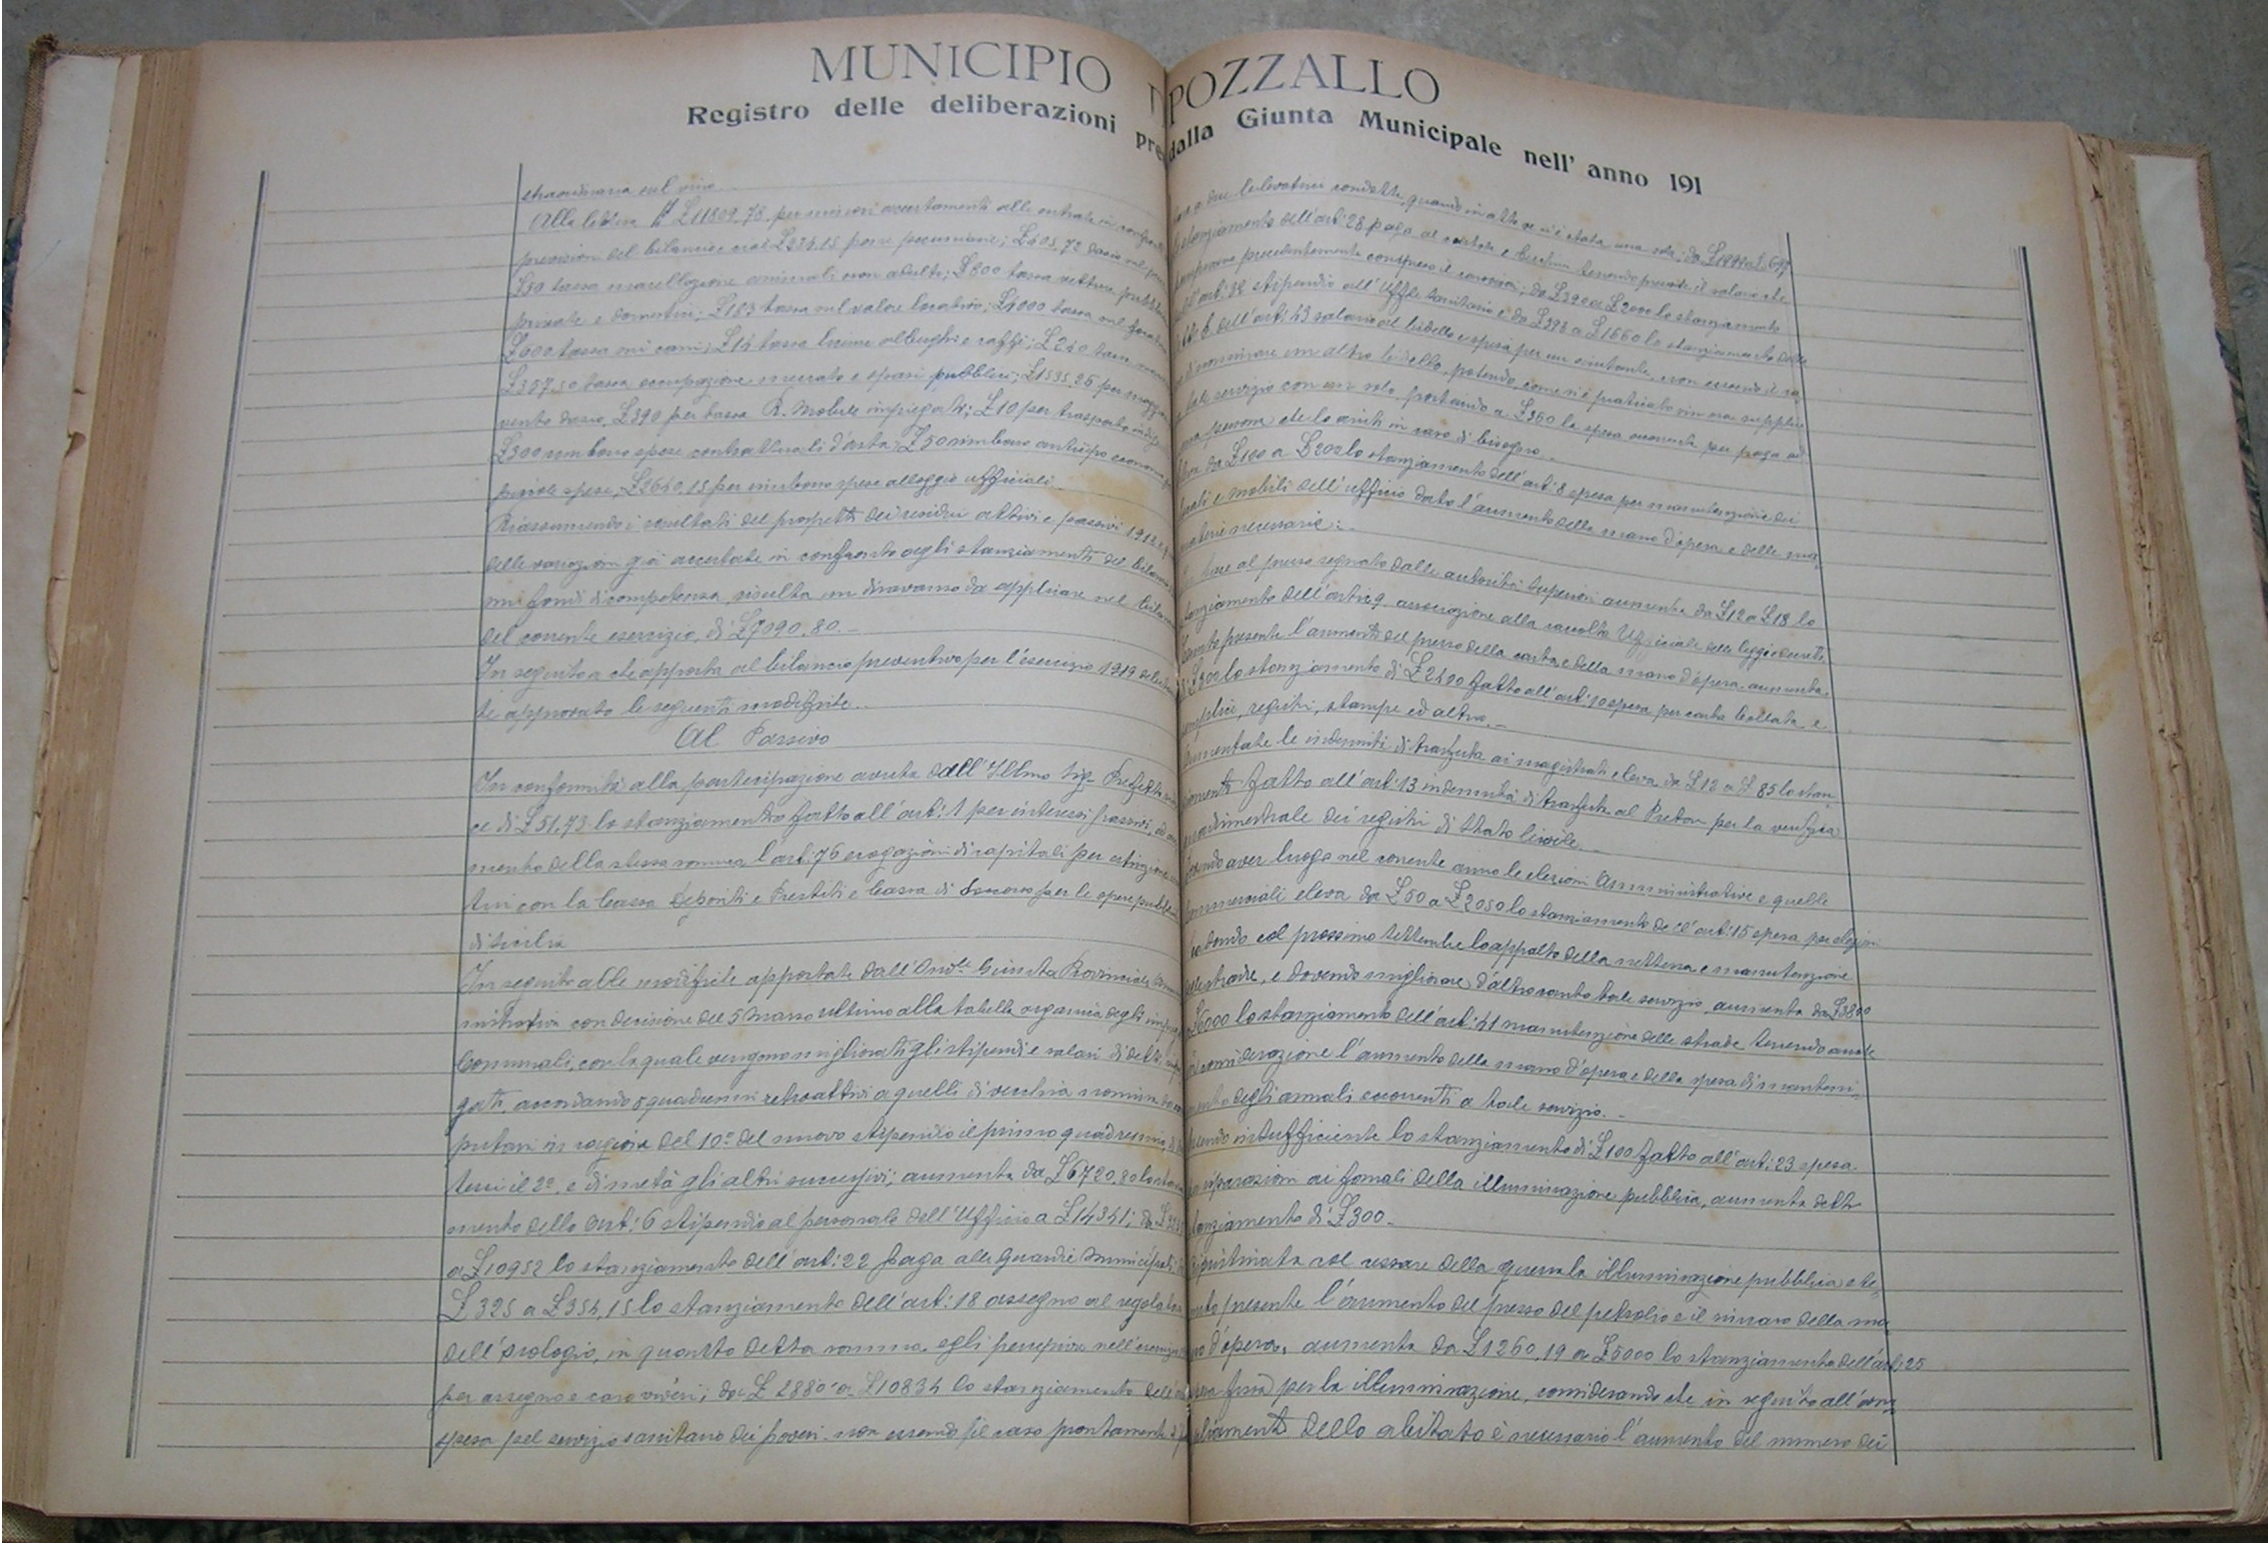 MUNICIPIO POZZALLO
Registro delle deliberazioni pre dalla Giunta Municipale nell' anno 191
straordinaria sul vino
Alla lettera £11809,78 per minori accertamenti alle entrate in
previsioni del bilancio e cioè
£50 tassa macellazione animali non adulti; £800 tassa vetture
private e domestici; £183 tassa sul valore locativo; £4000 tassa sul
£600 tassa sui cani; £14 tassa licenze alberghi e caffè; £240 tassa
£357,50 tassa occupazione mercato e spazi pubblici; £1535,25 per
vento dazio, £390 per tassa R. Mobile impiegati; £10 per trasporto
£300 rimborso spese contrattuali d'asta; £50 rimborso anticipo
piccole spese, £2640,15 per rimborso spese alloggio ufficiali
Riassumendo i risultati dei prospetti dei residui attivi e passivi 1918
delle variazioni già accertate in confronto agli stanziamenti del
sui fondi di competenza, risulta un disavanzo da applicare nel
del corrente esercizio, di £7090,80.-
In seguito a che apporta al bilancio preventivo per l'esercizio 1919
te approvato le seguenti modifiche.
Al Passivo
In conformità alla partecipazione avuta dall'Illmo Sig. Prefetto
ce di £51,73 lo stanziamento fatto all'art: 1 per interessi passivi,
mento della stessa somma l'art: 76 erogazioni di capitali per estinzione
tui con la Cassa Depositi e Prestiti e Cassa di Soccorso per le opere
di Sicilia
In seguito alle modifiche apportate dall'Onle Giunta Provinciale
nistrativa con decisione del 5 Marzo ultimo alla tabella organica degli
Comunali, con la quale vengono migliorati gli stipendi e salari di detti
gati, accordando quadrienni retroattivi a quelli di vecchia nomina
putarsi in ragione del 10º del nuovo stipendio il primo quadriennio,
il 2º, e di metà gli altri successivi; aumenta da £6720,80 lo
mento dello art: 6 stipendio al personale dell'Ufficio a £14341; da
a £10952 lo stanziamento dell'art: 22 paga alle Guardie Municipali;
£325 a £354,15 lo stanziamento dell'art: 18 assegno al
dell'orologio, in quanto detta somma egli percepiva
per assegno e caro viveri; da £2880 a £10834 lo stanziamento dell'
spesa pel servizio sanitario dei poveri non essendo il caso prontamente
due levatrici condotte, quando in atto ve n'è stata una sola; da
stanziamento dell'art: 28 paga al custode e becchini tenendo presente il salario che
precedentemente compreso il caroviveri; da £390 a £2000 lo stanziamento
dell'art: 32 stipendio all'Uffle Sanitario e da £393 a £1660 lo stanziamento
dell'art: 43 salario al bidello e spesa per un aiutante, non essendo il
di nominare un altro bidello, potendo, come si è praticato sin ora supplire
tale servizio con un solo, portando a £360 la spesa occorrente per paga ad
persona che lo aiuti in caso di bisogno.-
da £100 a £200 lo stanziamento dell'art: 8 spesa per manutenzione dei
locali e mobili dell'ufficio dato l'aumento della mano d'opera e delle
materie necessarie:-
base al prezzo segnato dalle autorità superiori aumenta da £12 a £18 lo
stanziamento dell'art: 9 associazione alla raccolta Ufficiale delle leggi e decreti
Tenuto presente l'aumento del prezzo della carta e della mano d'opera aumenta
di £300 lo stanziamento di £2400 fatto all'art: 10 spesa per carta bollata e
semplice, registri, stampe ed altro.-
Aumentate le indennità di trasferta ai magistrati eleva da £12 a £85 lo stan-
ziamento fatto all'art: 13 indennità di trasferta al Pretore per la verifica
quadrimestrale dei registri di Stato Civile.-
Dovendo aver luogo nel corrente anno le elezioni Amministrative e quelle
Commerciali eleva da £50 a £2050 lo stanziamento dell'art: 15 spesa per elezioni
Scadendo col prossimo Settembre lo appalto della nettezza e manutenzione
delle strade, e dovendo migliorare d'altro canto tale servizio, aumenta da £3800
£6000 lo stanziamento dell'art: 41 manutenzione delle strade tenendo anche
in considerazione l'aumento della mano d'opera e della spesa di manteni-
mento degli animali occorrenti a tale servizio.-
Essendo insufficiente lo stanziamento di £100 fatto all'art: 23 spesa
riparazioni ai fanali della illuminazione pubblica, aumenta detto
stanziamento di £300.-
Ripristinata col cessare della guerra la illuminazione pubblica e te-
nuto presente l'aumento del prezzo del petrolio e il rincaro della ma-
no d'opera, aumenta da £1260,19 a £5000 lo stanziamento dell'art: 25
per la illuminazione, considerando che in seguito all'am-
pliamento dello abitato è necessario l'aumento del numero dei